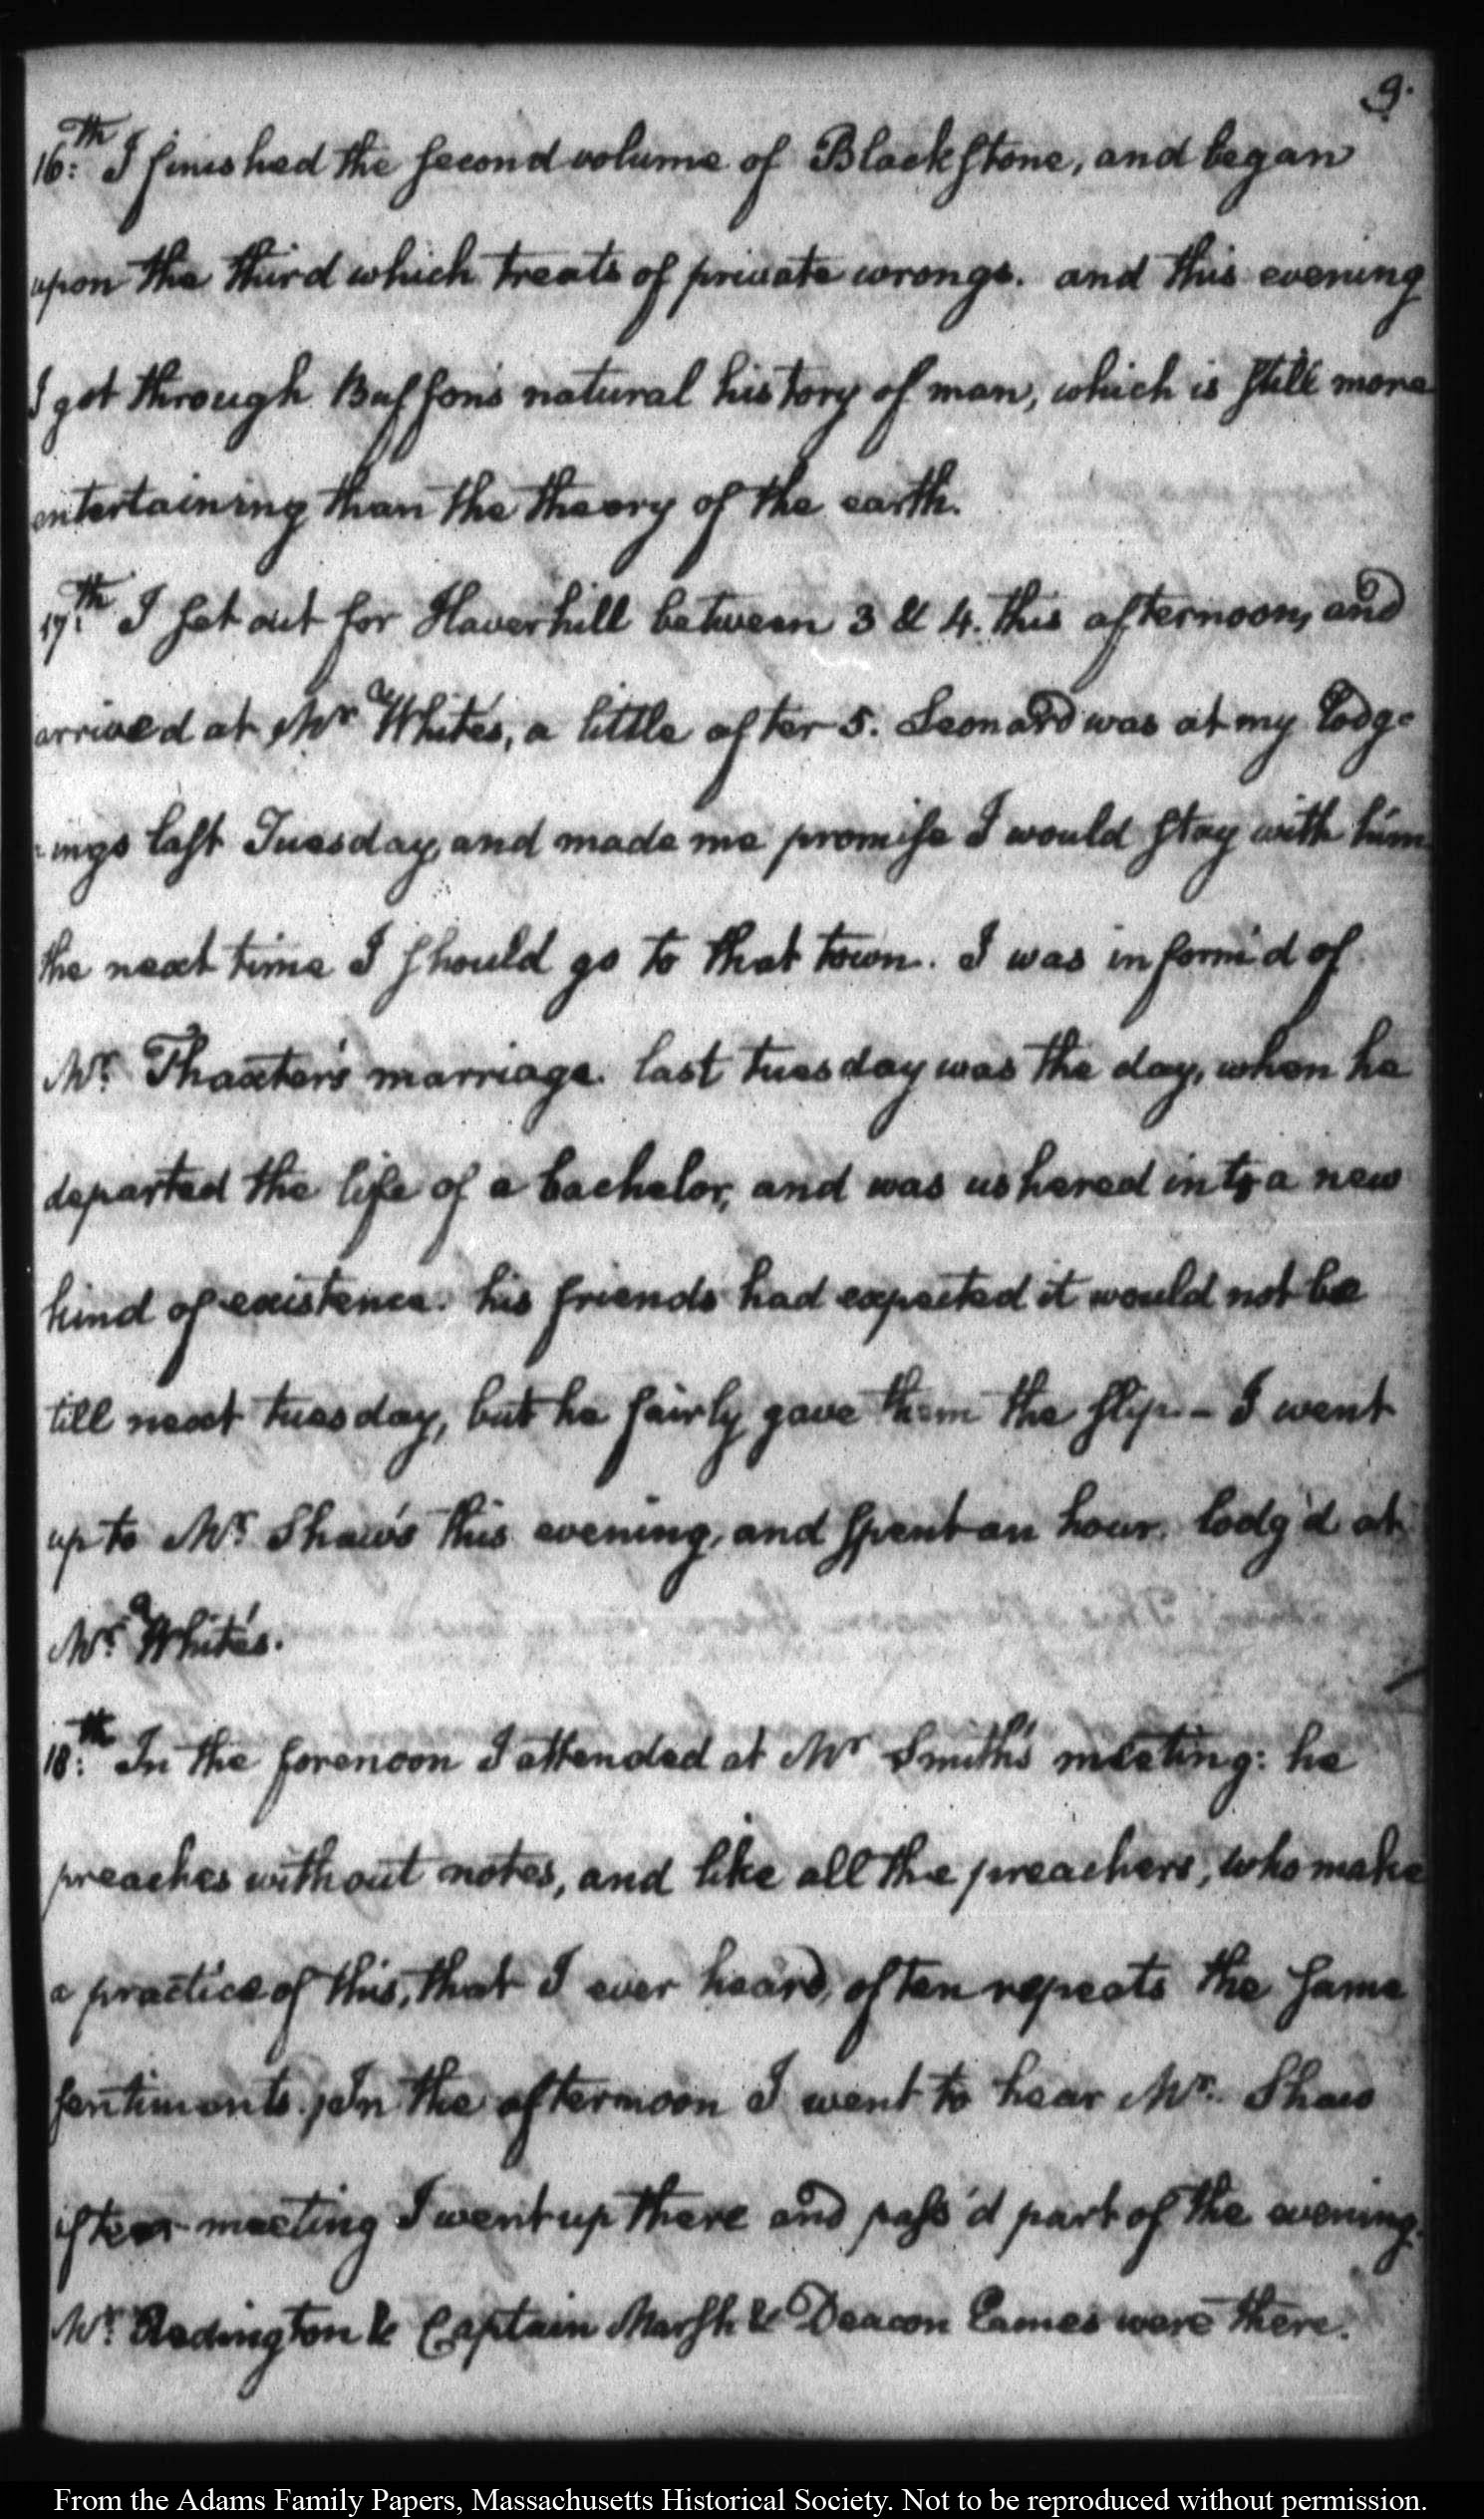 9.
16:th I finished the second volume of Blackstone, and began
upon the third which treats of private wrongs. and this evening
I got through Buffon's natural history of man, which is still more
entertaining than the theory of the earth.
17:th I set out for Haverhill between 3 & 4. this afternoon, and
arrived at Mr White's, a little after 5. Leonard was at my lodg-
-ings last Tuesday, and made me promise I would stay with him
the next time I should go to that town. I was inform'd of
Mr. Thaxter's marriage. last tuesday was the day, when he
departed the life of a bachelor, and was ushered into a new
kind of existence. his friends had expected it would not be
till next tuesday, but he fairly gave them the slip - I went
up to Mr. Shaw's this evening, and spent an hour. lodg'd at
Mr. White's.
18:th In the forenoon I attended at Mr Smith's meeting: he
preaches without notes, and like all the preachers, who make
a practice of this, that I ever heard, often repeats the same
sentiments. In the afternoon I went to hear Mr. Shaw
after meeting I went up there and pass'd part of the evening.
Mr. Redington & Captain Marsh & Deacon Eames were there.
From the Adams Family Papers, Massachusetts Historical Society. Not to be reproduced without permission.